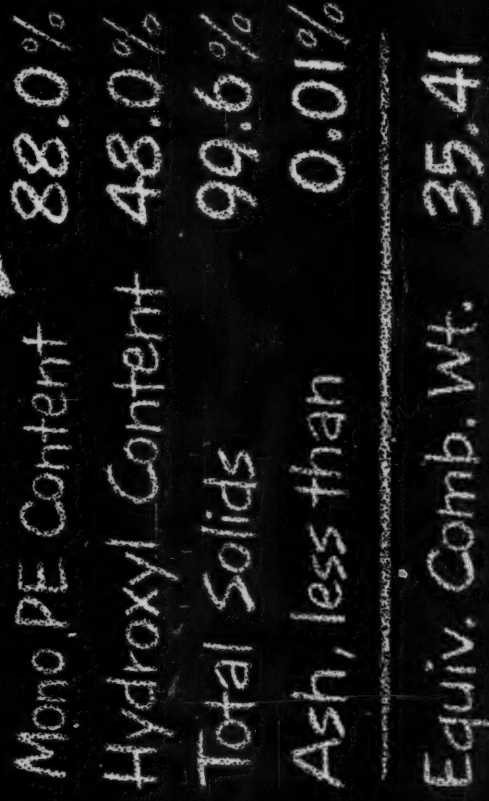 Mono PE Content 88.0%
Hydroxyl Content 48.0%
Total Solids 99.6%
Ash, less than 0.01%
Equiv. Comb. Wt. 35.41